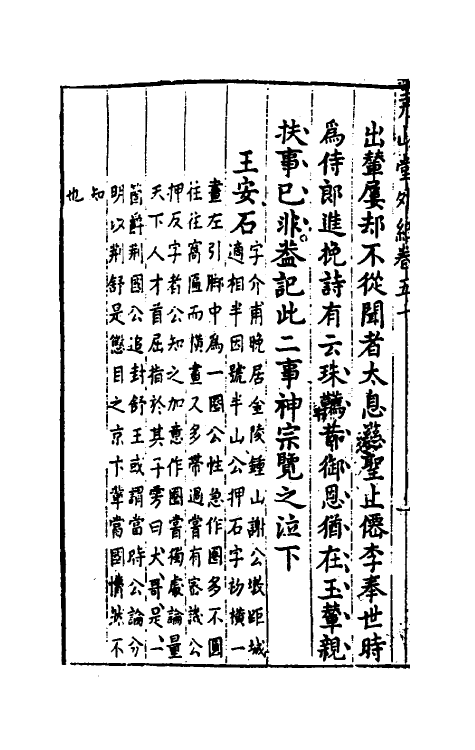 堯山堂外紀卷五十
出輦屢却不從聞者太息慈聖上僊李奉世時
爲侍郎進挽詩有云珠韉昔御恩猶在玉輦親
扶事已非葢記此二事神宗覽之泣下
王安石字介甫晚居金陵鍾山謝公墩距城
適相半因號半山公押石字初橫一
畫左引脚中爲一圈公性急作圈多不圓
往往窩匾而橫畫又多帶過嘗有密議公
押反字者公知之加意作圈書獨處論量
天下人才首屈指於其子雱曰大哥是一
箇爵荆國公追封舒王或謂當時公論分
明以荆舒是懲目之京卞輩當國懵然不
知
也